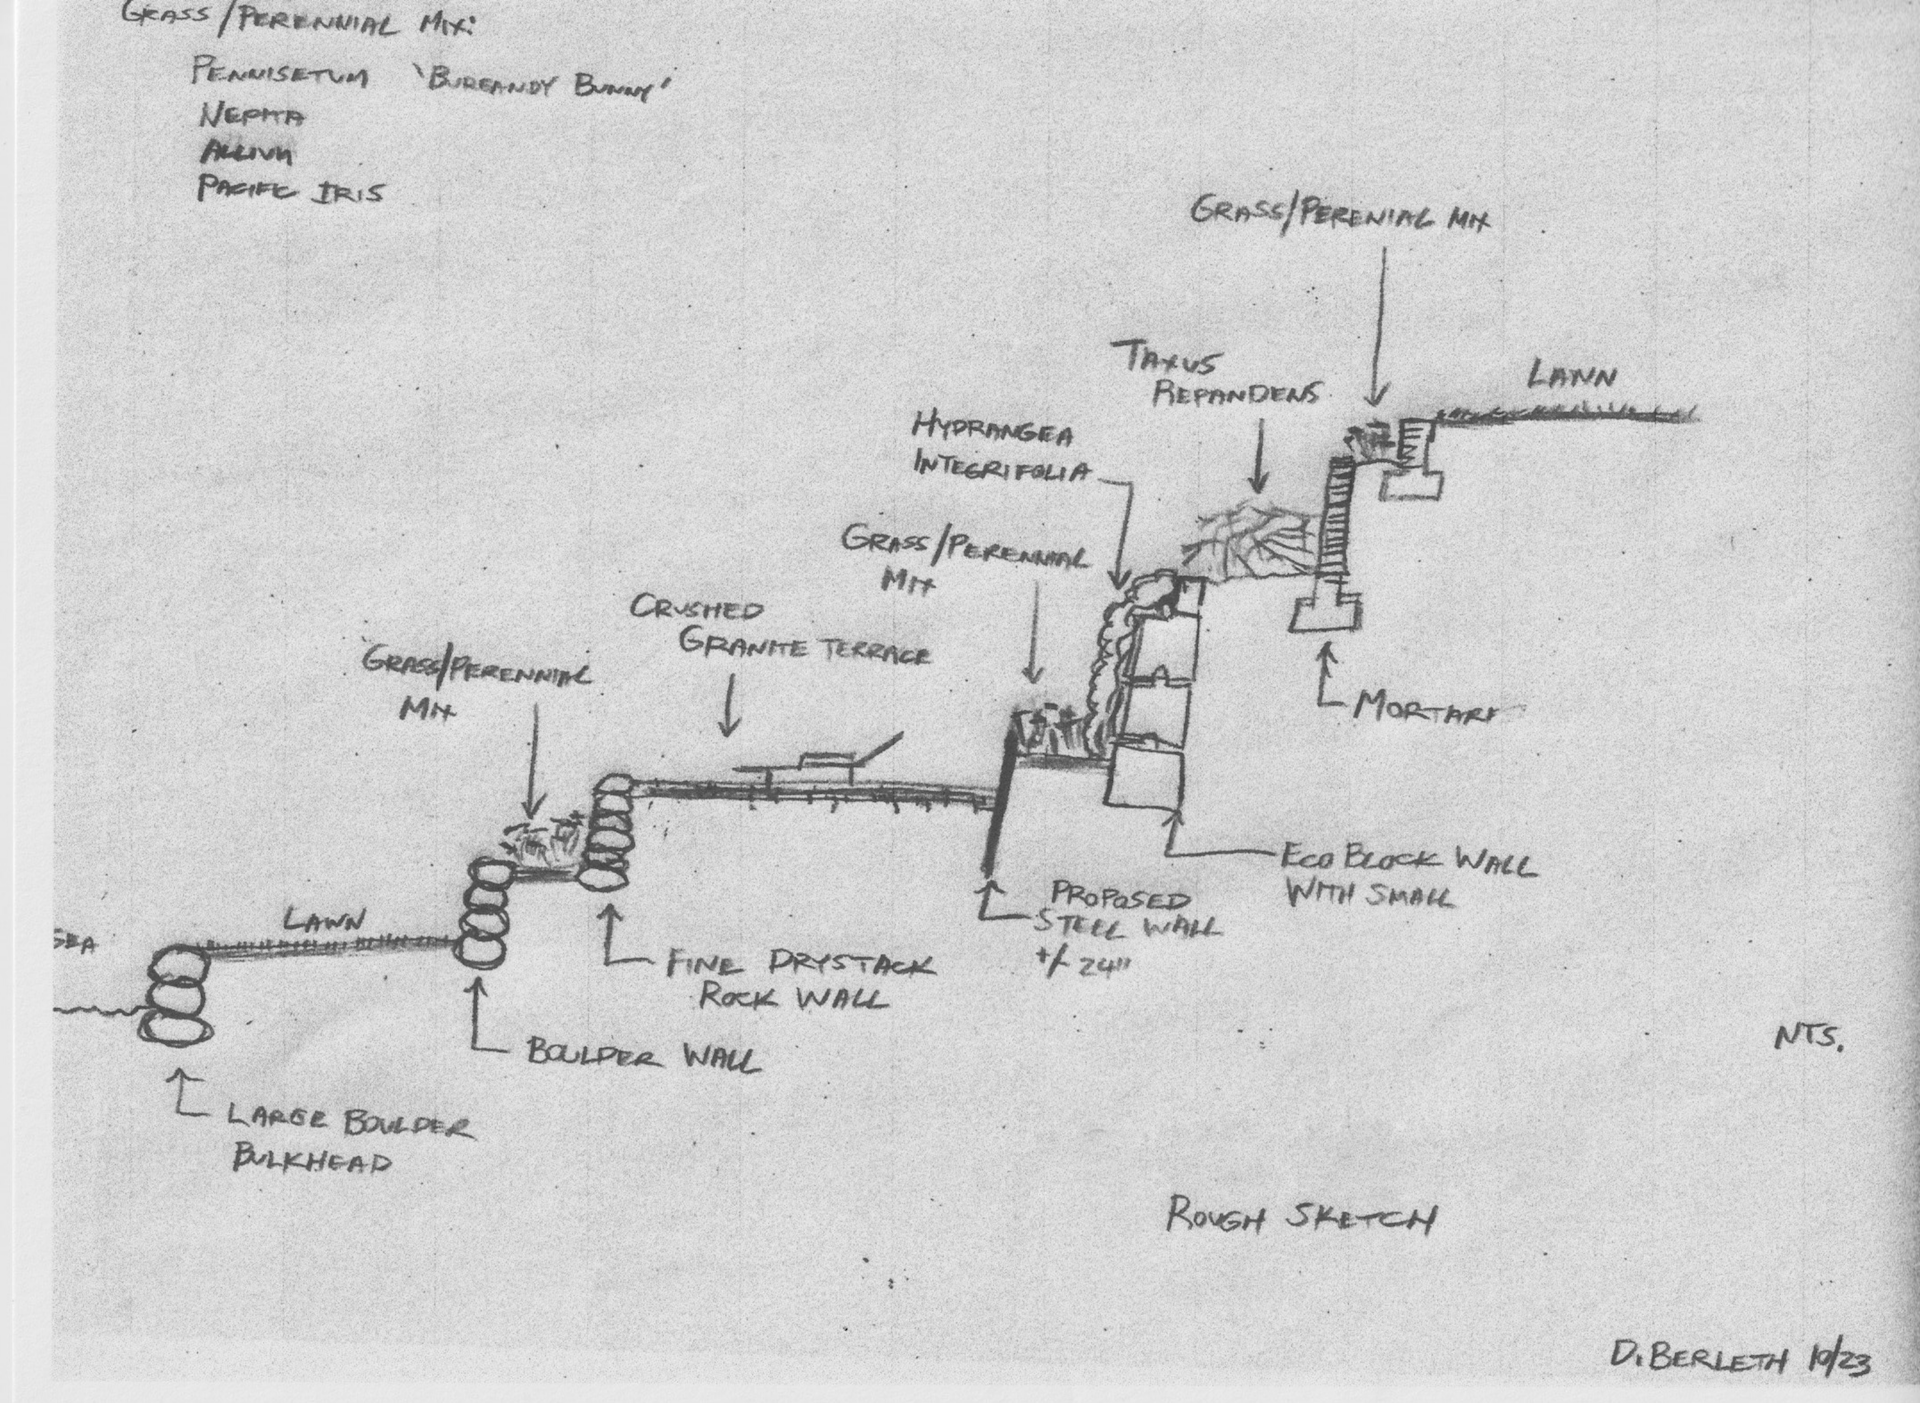 GRASS/PERENNIAL MIX:
PENNISETUM 'BURGANDY BUNNY'
NEPITA
ALLIUM
PACIFIC IRIS
GRASS/PERENIAL MIX
TAXUS
REPANDENS
LAWN
HYDRANGEA
INTEGRIFOLIA
GRASS/PERENNIAL
MIX
CRUSHED
GRANITE TERRACE
GRASS/PERENNIAL
MIX
MORTAR
ECO BLOCK WALL
WITH SMALL
PROPOSED
STEEL WALL
+/- 24"
LAWN
SEA
FINE DRYSTACK
ROCK WALL
BOULDER WALL
NTS.
LARGE BOULDER
BULKHEAD
ROUGH SKETCH
D. BERLETH 10/23